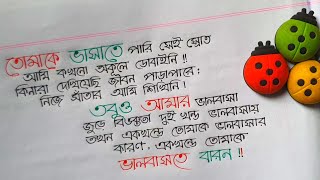 তোমাকে ভাসাতে পারি সেই স্রোত
আমি কখনো অকূলে ডোবাইনি!!
কিনারা দেখিয়েছি জীবন পাড়াপাবে;
নিজে সাঁতার আমি শিখিনি!
তবুও আমার ভালবাসা
জুড়ে বিষন্নতা দুই খন্ড ভালবাসায়
তখন একখন্ডে তোমাকে ভালবাসার
কারণ, একখন্ডে তোমাকে
ভালবাসতে বারন!!